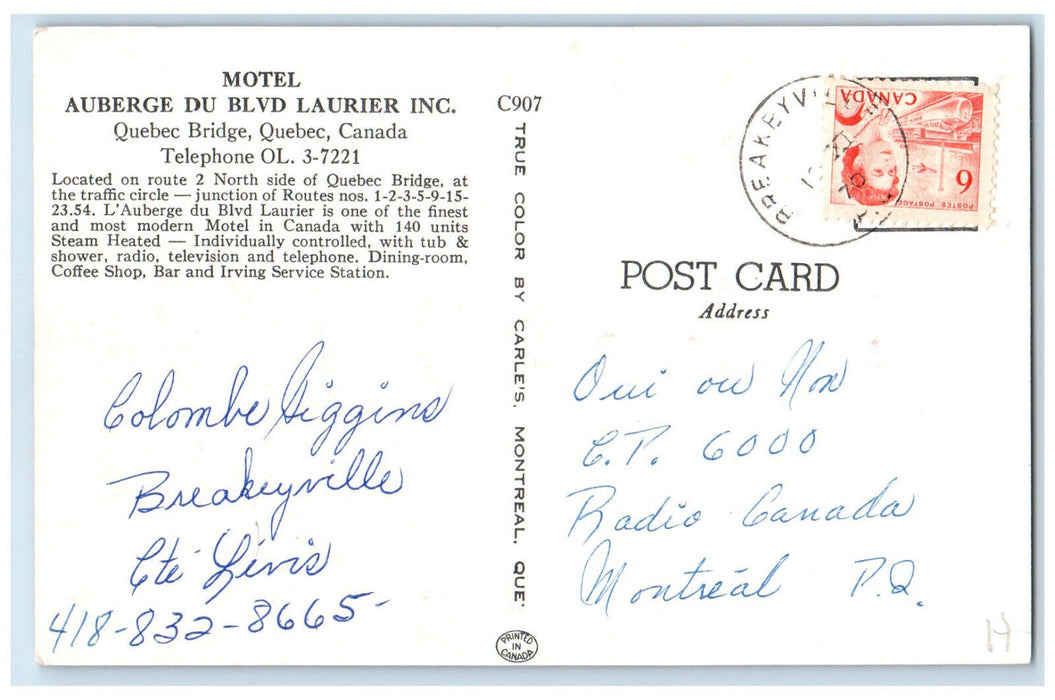 MOTEL
AUBERGE DU BLVD LAURIER INC.
Quebec Bridge, Quebec, Canada
Telephone OL. 3-7221
Located on route 2 North side of Quebec Bridge, at
the traffic circle — junction of Routes nos. 1-2-3-5-9-15-
23.54. L'Auberge du Blvd Laurier is one of the finest
and most modern Motel in Canada with 140 units
Steam Heated — Individually controlled, with tub &
shower, radio, television and telephone. Dining-room,
Coffee Shop, Bar and Irving Service Station.
Colombe Giggins
Breakeyville
Cté Lévis
418-832-8665-
C907
TRUE COLOR BY CARLE'S, MONTREAL, QUE.
PRINTED
IN
CANADA
BREAKEYVILLE
XI
70
CANADA
6
POSTES POSTAGE
POST CARD
Address
Oui ou Non
C.P. 6000
Radio Canada
Montréal P.Q.
H